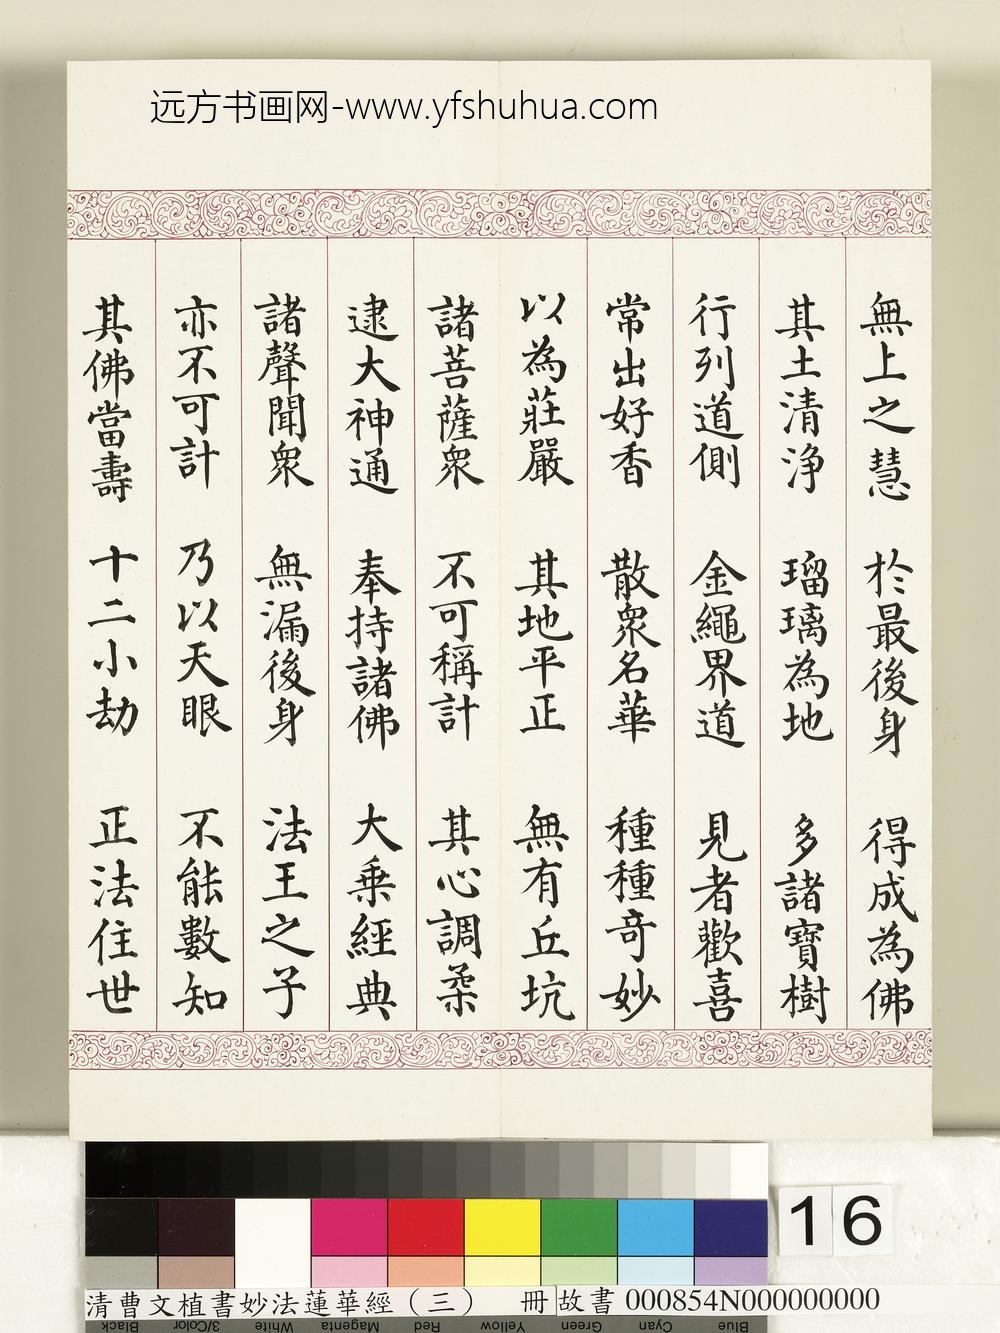 远方书画网-www.yfshuhua.com
無上之慧 於最後身 得成為佛
其土清淨 瑠璃為地 多諸寶樹
行列道側 金繩界道 見者歡喜
常出好香 散衆名華 種種奇妙
以為莊嚴 其地平正 無有丘坑
諸菩薩衆 不可稱計 其心調柔
逮大神通 奉持諸佛 大乗經典
諸聲聞衆 無漏後身 法王之子
亦不可計 乃以天眼 不能數知
其佛當壽 十二小劫 正法住世
16
清曹文植書妙法蓮華經(三) 冊 故書 000854N000000000
Black 3/Color White Magenta Red Yellow Green Cyan Blue